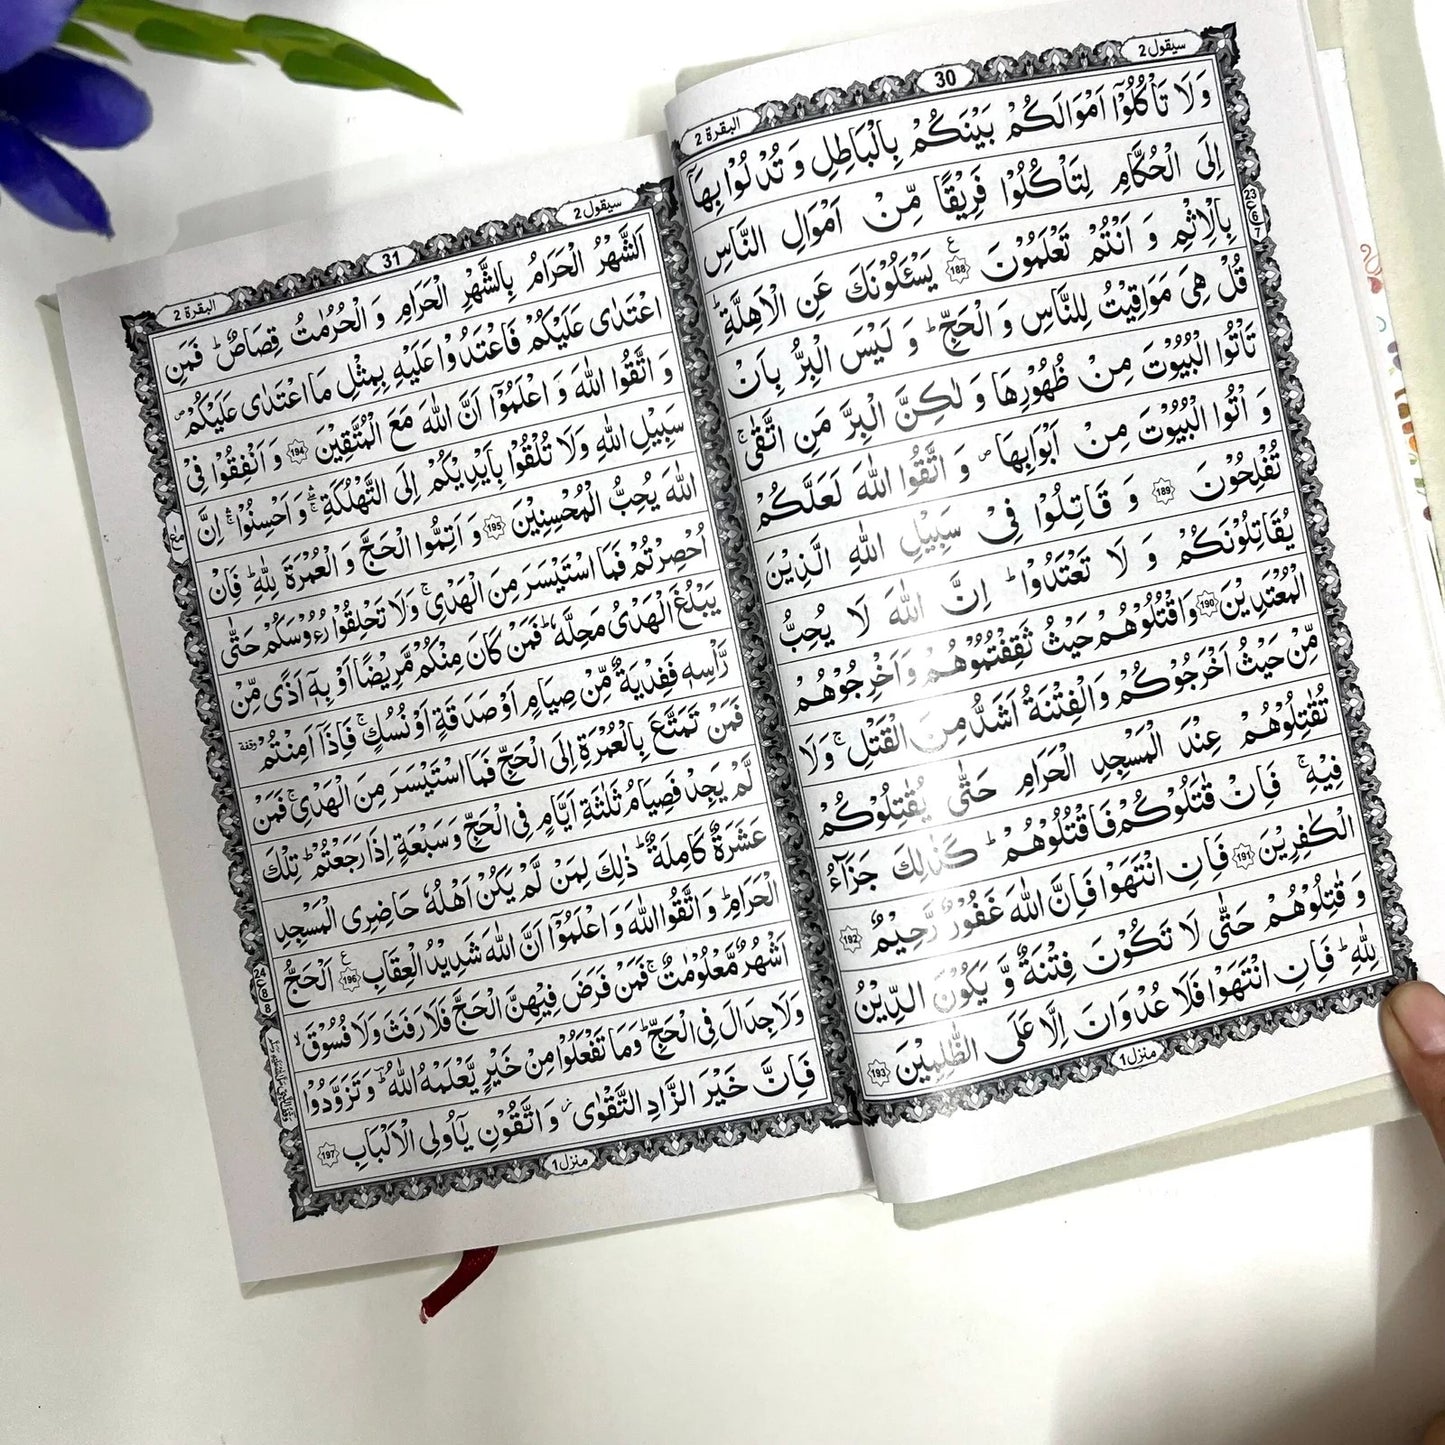 البقرة 2
30
سيقول 2
وَلَا تَاْكُلُوْۤا اَمْوَالَكُمْ بَيْنَكُمْ بِالْبَاطِلِ وَ تُدْلُوْا بِهَاۤ
اِلَى الْحُكَّامِ لِتَاْكُلُوْا فَرِيْقًا مِّنْ اَمْوَالِ النَّاسِ
بِالْاِثْمِ وَ اَنْتُمْ تَعْلَمُوْنَ 188 ع يَسْـَٔلُوْنَكَ عَنِ الْاَهِلَّةِ ؕ
قُلْ هِيَ مَوَاقِيْتُ لِلنَّاسِ وَ الْحَجِّ ؕ وَ لَيْسَ الْبِرُّ بِاَنْ
تَاْتُوا الْبُيُوْتَ مِنْ ظُهُوْرِهَا وَ لٰكِنَّ الْبِرَّ مَنِ اتَّقٰى ۚ
وَ اْتُوا الْبُيُوْتَ مِنْ اَبْوَابِهَا ۪ وَ اتَّقُوا اللّٰهَ لَعَلَّكُمْ
تُفْلِحُوْنَ 189 وَ قَاتِلُوْا فِيْ سَبِيْلِ اللّٰهِ الَّذِيْنَ
يُقَاتِلُوْنَكُمْ وَ لَا تَعْتَدُوْا ؕ اِنَّ اللّٰهَ لَا يُحِبُّ
الْمُعْتَدِيْنَ 190 وَاقْتُلُوْهُمْ حَيْثُ ثَقِفْتُمُوْهُمْ وَاَخْرِجُوْهُمْ
مِّنْ حَيْثُ اَخْرَجُوْكُمْ وَالْفِتْنَةُ اَشَدُّ مِنَ الْقَتْلِ ۚ وَلَا
تُقٰتِلُوْهُمْ عِنْدَ الْمَسْجِدِ الْحَرَامِ حَتّٰى يُقٰتِلُوْكُمْ
فِيْهِ ۚ فَاِنْ قٰتَلُوْكُمْ فَاقْتُلُوْهُمْ ؕ كَذٰلِكَ جَزَآءُ
الْكٰفِرِيْنَ 191 فَاِنِ انْتَهَوْا فَاِنَّ اللّٰهَ غَفُوْرٌ رَّحِيْمٌ 192
وَ قٰتِلُوْهُمْ حَتّٰى لَا تَكُوْنَ فِتْنَةٌ وَّ يَكُوْنَ الدِّيْنُ
لِلّٰهِ ؕ فَاِنِ انْتَهَوْا فَلَا عُدْوَانَ اِلَّا عَلَى الظّٰلِمِيْنَ 193
23
ع
6
7
منزل 1
البقرة 2
31
سيقول 2
اَلشَّهْرُ الْحَرَامُ بِالشَّهْرِ الْحَرَامِ وَ الْحُرُمٰتُ قِصَاصٌ ؕ فَمَنِ
اعْتَدٰى عَلَيْكُمْ فَاعْتَدُوْا عَلَيْهِ بِمِثْلِ مَا اعْتَدٰى عَلَيْكُمْ ۪
وَ اتَّقُوا اللّٰهَ وَ اعْلَمُوْۤا اَنَّ اللّٰهَ مَعَ الْمُتَّقِيْنَ 194 وَ اَنْفِقُوْا فِيْ
سَبِيْلِ اللّٰهِ وَلَا تُلْقُوْا بِاَيْدِيْكُمْ اِلَى التَّهْلُكَةِ ۛۚ وَ اَحْسِنُوْا ۛۚ اِنَّ
اللّٰهَ يُحِبُّ الْمُحْسِنِيْنَ 195 وَ اَتِمُّوا الْحَجَّ وَ الْعُمْرَةَ لِلّٰهِ ؕ فَاِنْ
اُحْصِرْتُمْ فَمَا اسْتَيْسَرَ مِنَ الْهَدْيِ ۚ وَلَا تَحْلِقُوْا رُءُوْسَكُمْ حَتّٰى
يَبْلُغَ الْهَدْىُ مَحِلَّهٗ ؕ فَمَنْ كَانَ مِنْكُمْ مَّرِيْضًا اَوْ بِهٖۤ اَذًى مِّنْ
رَّاْسِهٖ فَفِدْيَةٌ مِّنْ صِيَامٍ اَوْ صَدَقَةٍ اَوْ نُسُكٍ ۚ فَاِذَاۤ اَمِنْتُمْ وقفة
فَمَنْ تَمَتَّعَ بِالْعُمْرَةِ اِلَى الْحَجِّ فَمَا اسْتَيْسَرَ مِنَ الْهَدْيِ ۚ فَمَنْ
لَّمْ يَجِدْ فَصِيَامُ ثَلٰثَةِ اَيَّامٍ فِى الْحَجِّ وَ سَبْعَةٍ اِذَا رَجَعْتُمْ ؕ تِلْكَ
عَشَرَةٌ كَامِلَةٌ ؕ ذٰلِكَ لِمَنْ لَّمْ يَكُنْ اَهْلُهٗ حَاضِرِى الْمَسْجِدِ
الْحَرَامِ ؕ وَ اتَّقُوا اللّٰهَ وَ اعْلَمُوْۤا اَنَّ اللّٰهَ شَدِيْدُ الْعِقَابِ 196 ع اَلْحَجُّ
اَشْهُرٌ مَّعْلُوْمٰتٌ ۚ فَمَنْ فَرَضَ فِيْهِنَّ الْحَجَّ فَلَا رَفَثَ وَ لَا فُسُوْقَ ۙ
وَ لَا جِدَالَ فِى الْحَجِّ ؕ وَمَا تَفْعَلُوْا مِنْ خَيْرٍ يَّعْلَمْهُ اللّٰهُ ؔؕ وَ تَزَوَّدُوْا
فَاِنَّ خَيْرَ الزَّادِ التَّقْوٰى ؗ وَ اتَّقُوْنِ يٰۤاُولِى الْاَلْبَابِ 197
24
ع
8
8
منزل 1